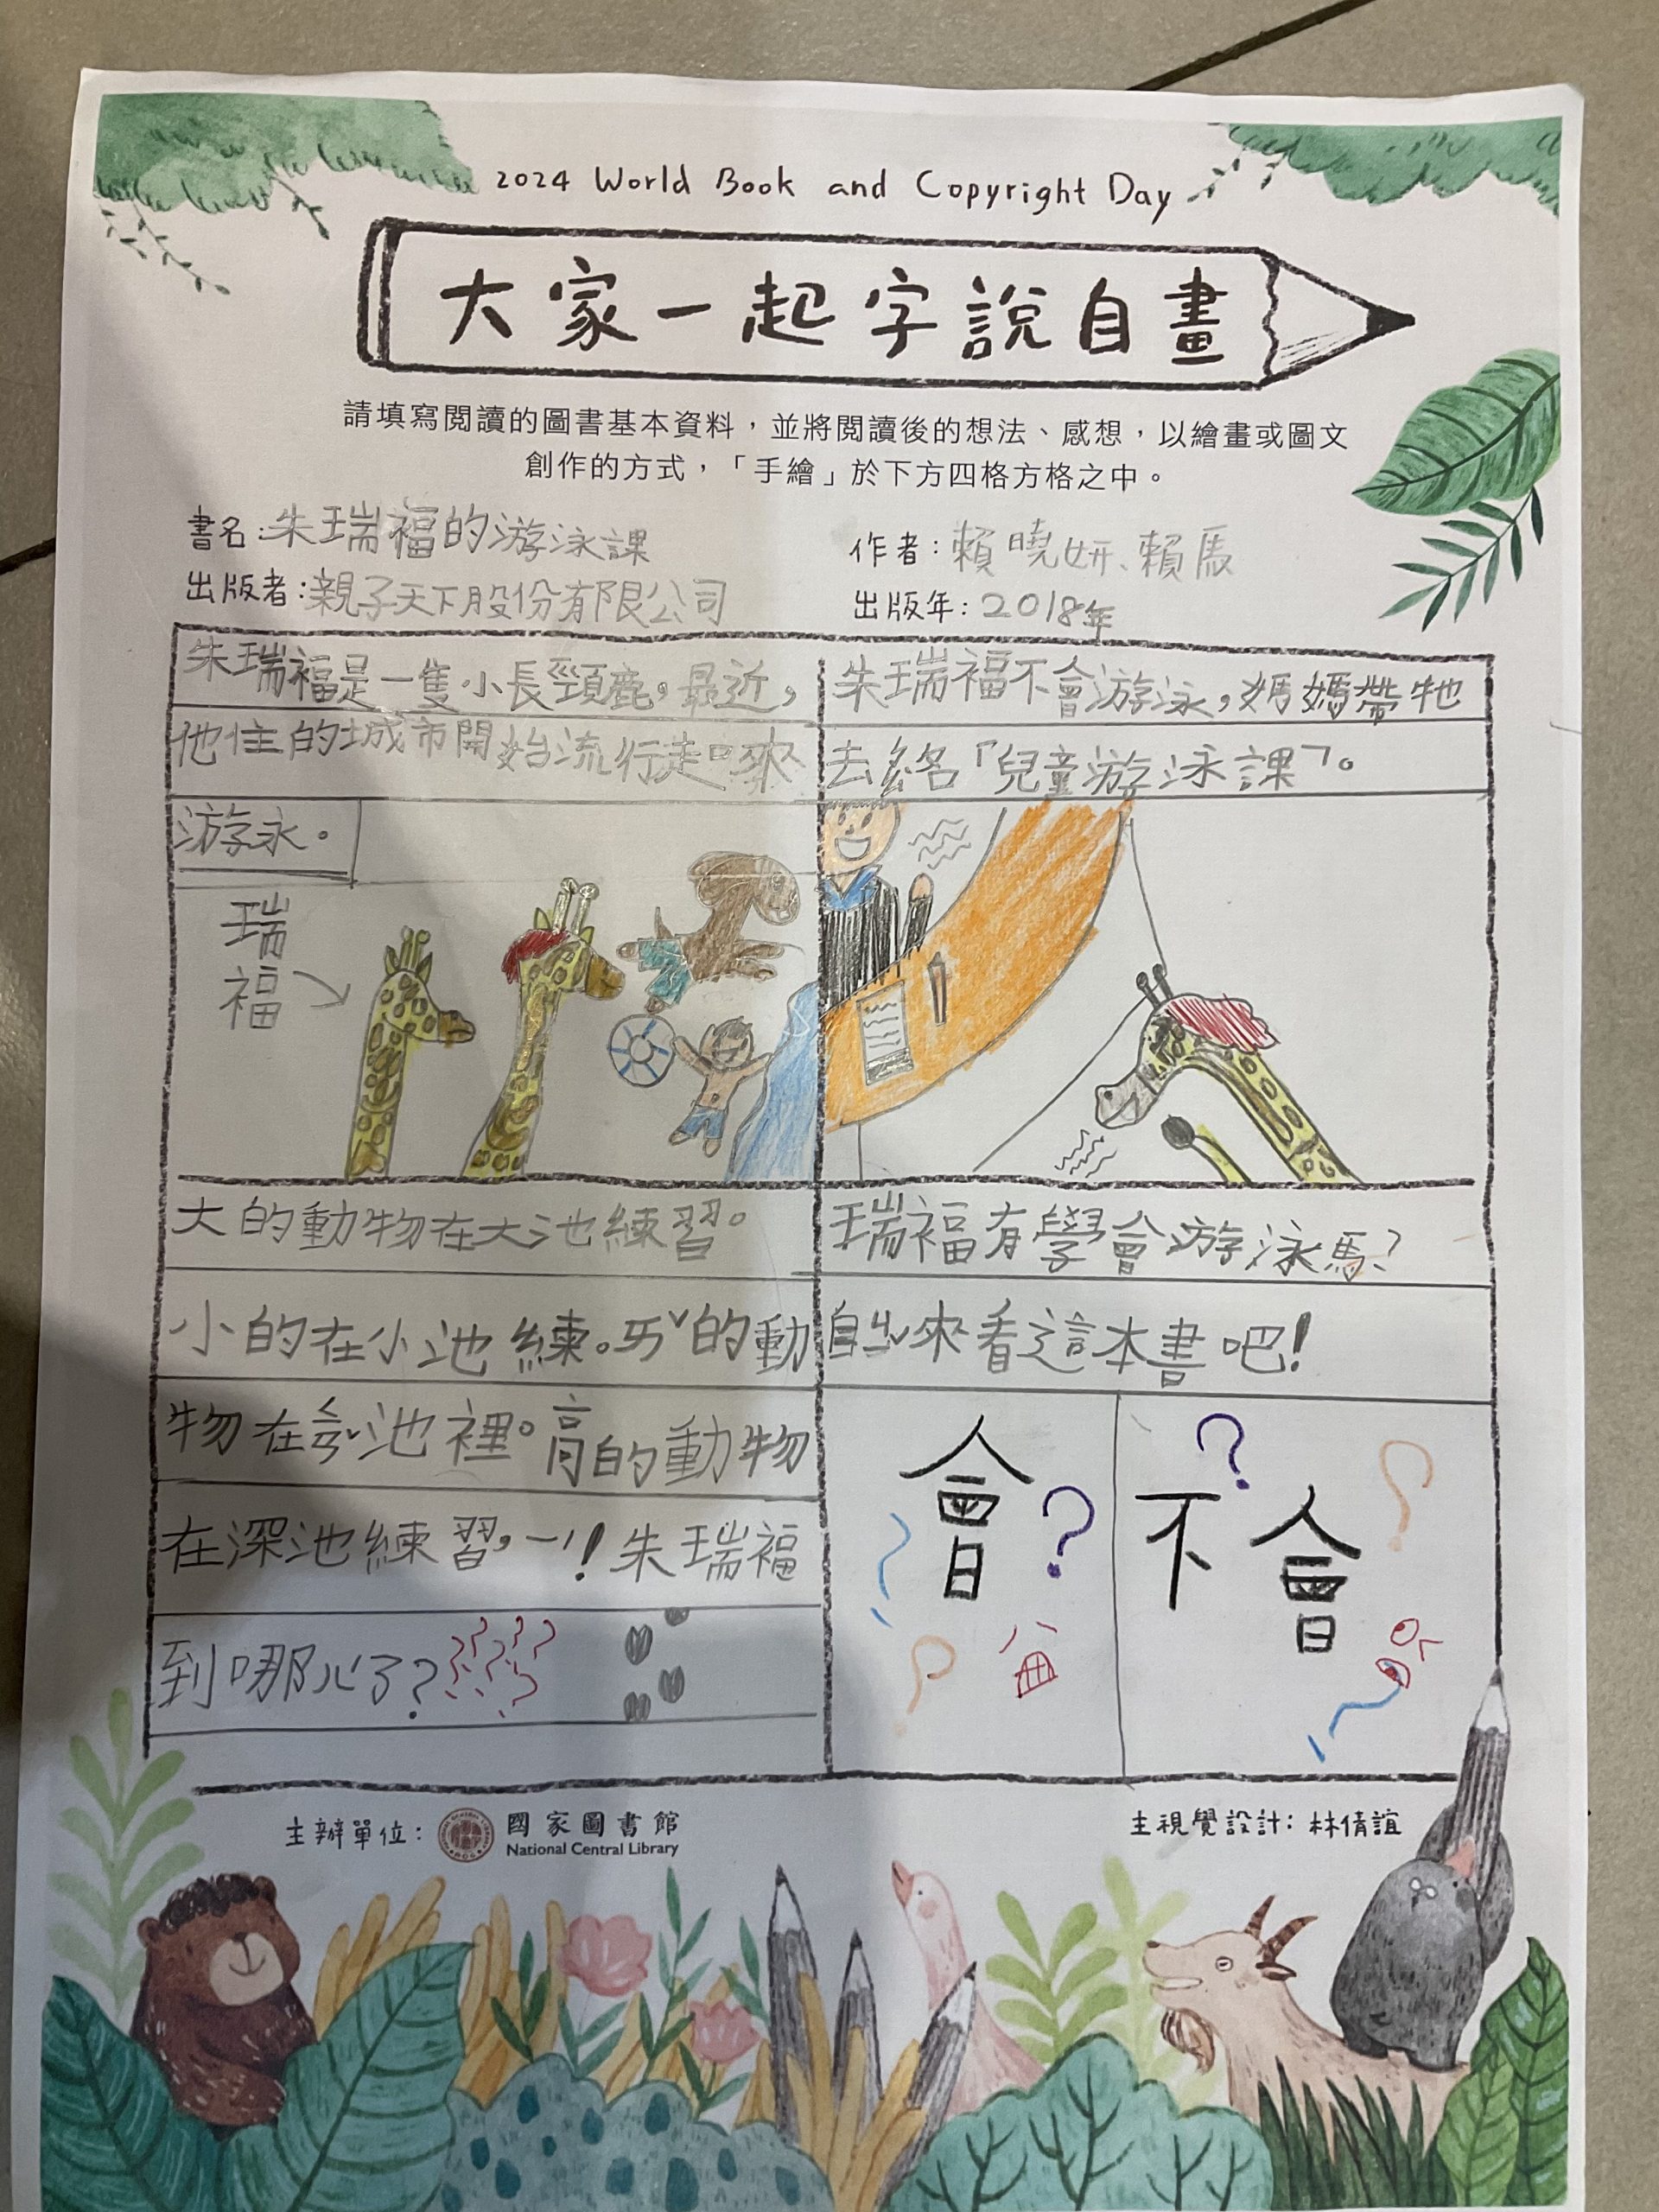 2024 World Book and Copyright Day
大家一起字說自畫
請填寫閱讀的圖書基本資料，並將閱讀後的想法、感想，以繪畫或圖文
創作的方式，「手繪」於下方四格方格之中。
書名：朱瑞福的游泳課
作者：賴曉妍、賴馬
出版者：親子天下股份有限公司
出版年：2018年
朱瑞福是一隻小長頸鹿，最近，
他住的城市開始流行走
游永。
瑞
福
朱瑞福不會游泳，媽媽帶牠
去「兒童游泳課」。
大的動物在大池練習。
小的在小池練。ㄞˇ的動
物在ㄑㄧㄢˇ池裡。高的動物
在深池練習，一ˊ！朱瑞福
到哪ㄦ了？
瑞福有學會游泳馬？
自己來看這本書吧！
會？
不會？
主辦單位：
國家圖書館
National Central Library
主視覺設計：林倩誼